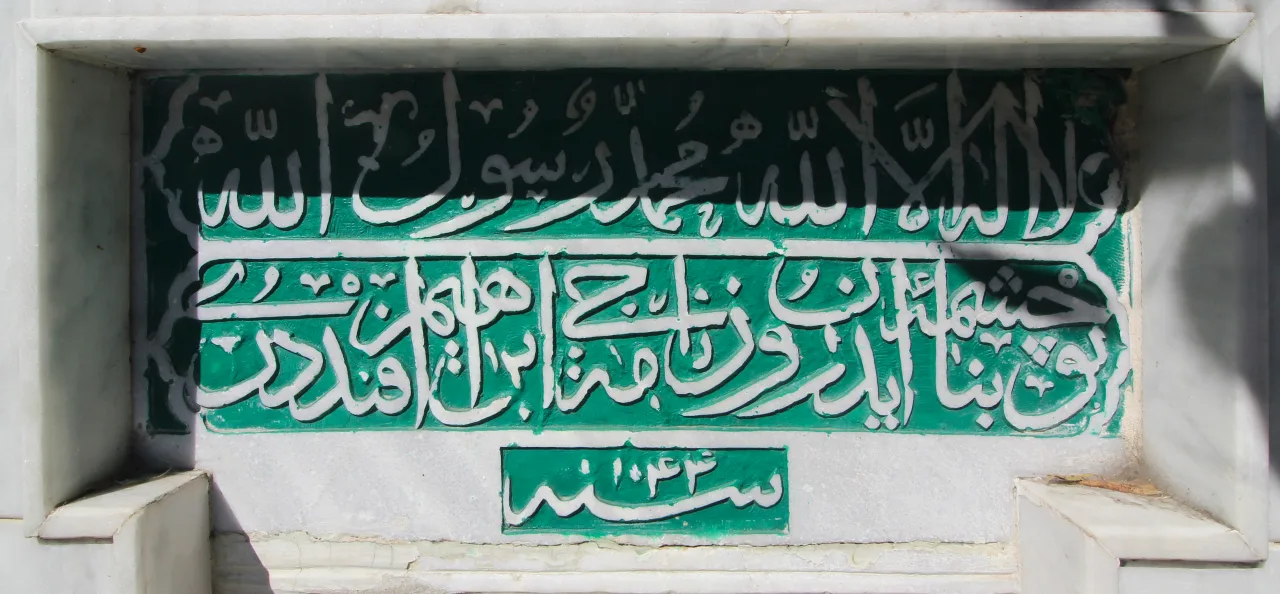 لا اله الا الله محمد رسول الله
بو چشمه بنا ایدن روزنامه جی ابراهیم افندی در
سنه ١٠٤٤